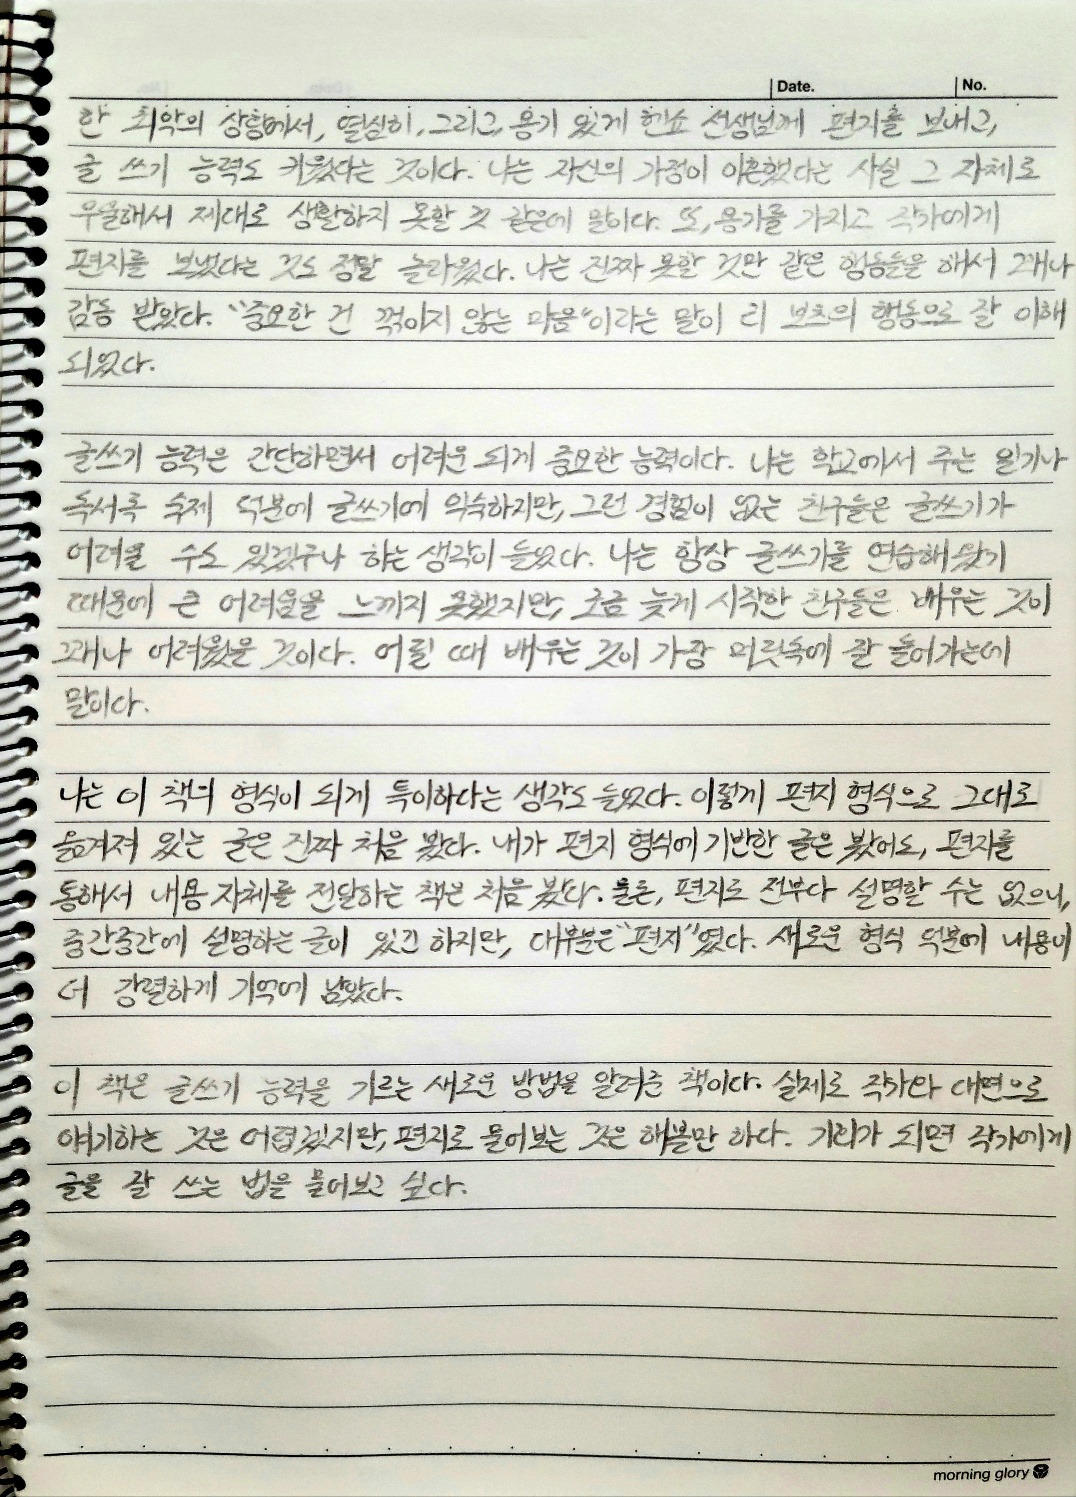 Date. No.
한 최악의 상황에서, 열심히, 그리고, 용기 있게 헨쇼 선생님께 편지를 보내고,
글 쓰기 능력도 키웠다는 것이다. 나는 자신의 가정이 이혼했다는 사실 그 자체로
우울해서 제대로 생활하지 못할 것 같은데 말이다. 또, 용기를 가지고 작가에게
편지를 보냈다는 것도 정말 놀라웠다. 나는 진짜 못할 것만 같은 행동들을 해서 꽤나
감동 받았다. "중요한 건 꺾이지 않는 마음"이라는 말이 리 보츠의 행동으로 잘 이해
되었다.
글쓰기 능력은 간단하면서 어려운 되게 중요한 능력이다. 나는 학교에서 주는 일기나
독서록 숙제 덕분에 글쓰기에 익숙하지만, 그런 경험이 없는 친구들은 글쓰기가
어려울 수도 있겠구나 하는 생각이 들었다. 나는 항상 글쓰기를 연습해 왔기
때문에 큰 어려움을 느끼지 못했지만, 조금 늦게 시작한 친구들은 배우는 것이
꽤나 어려웠을 것이다. 어릴 때 배우는 것이 가장 머릿속에 잘 들어가는데
말이다.
나는 이 책의 형식이 되게 특이하다는 생각도 들었다. 이렇게 편지 형식으로 그대로
옮겨져 있는 글은 진짜 처음 봤다. 내가 편지 형식에 기반한 글은 봤어도, 편지를
통해서 내용 자체를 전달하는 책은 처음 봤다. 물론, 편지로 전부다 설명할 수는 없으니,
중간중간에 설명하는 글이 있긴 하지만, 대부분은 "편지"였다. 새로운 형식 덕분에 내용이
더 강렬하게 기억에 남았다.
이 책은 글쓰기 능력을 기르는 새로운 방법을 알려준 책이다. 실제로 작가와 대면으로
얘기하는 것은 어렵겠지만, 편지로 물어보는 것은 해볼만 하다. 기회가 되면 작가에게
글을 잘 쓰는 법을 물어보고 싶다.
morning glory